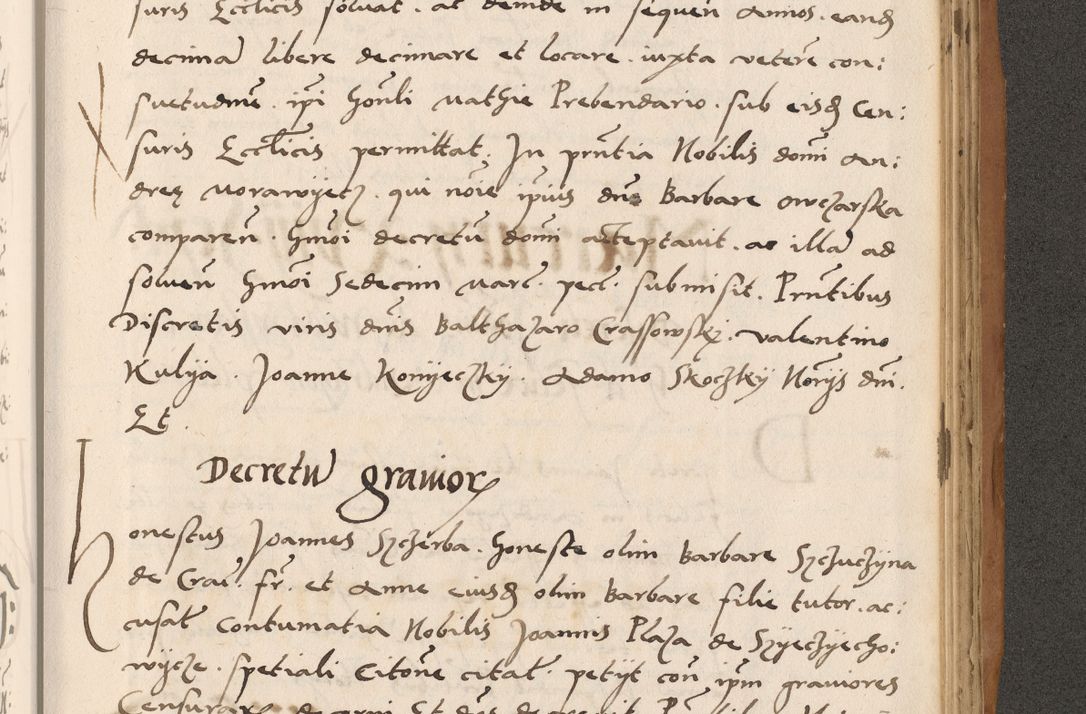 suris Eccl̃icis soluat. ac deinde in sequeñ annos. eand̃
decimã libere decimare et locare. iuxta veterẽ con:
suetudinẽ. ip̃i hon̄li Mathie Prebendario. sub eisd̃ Cen:
suris Eccl̃icis permittat. In pr̃ntia Nobilis domĩ An:
dreę Morawyecz. qui noĩe ip̃ius dn̄e Barbare owczarska
compareñ. hmoĩ decretũ domĩ acceptauit. ac illã ad
solueñ hmoĩ Sedecim marc̃. pec̃. submisit. Pr̃ntibus
Discretis viris dn̄is Balthazaro Crassowskj. Valentino
Kulya. Joanne Konyeczky. Adamo Skoczky Norỹs dn̄i.
Et.
Decretũ grauiorꝝ
Honestus Joannes Szczerba. honeste olim Barbare Szczuczyna
de Crac̃. fr̃. et Anne eiusd̃ olim Barbare filie tutor. ac:
cusat̃ Contumatia Nobilis Joannis Plaza de Szyeczyecho:
wycze. spetiali Citoñe citat̃. petyt con̄ ip̃m grauiores
Censuraꝝ decerni Et dn̄s decreuit